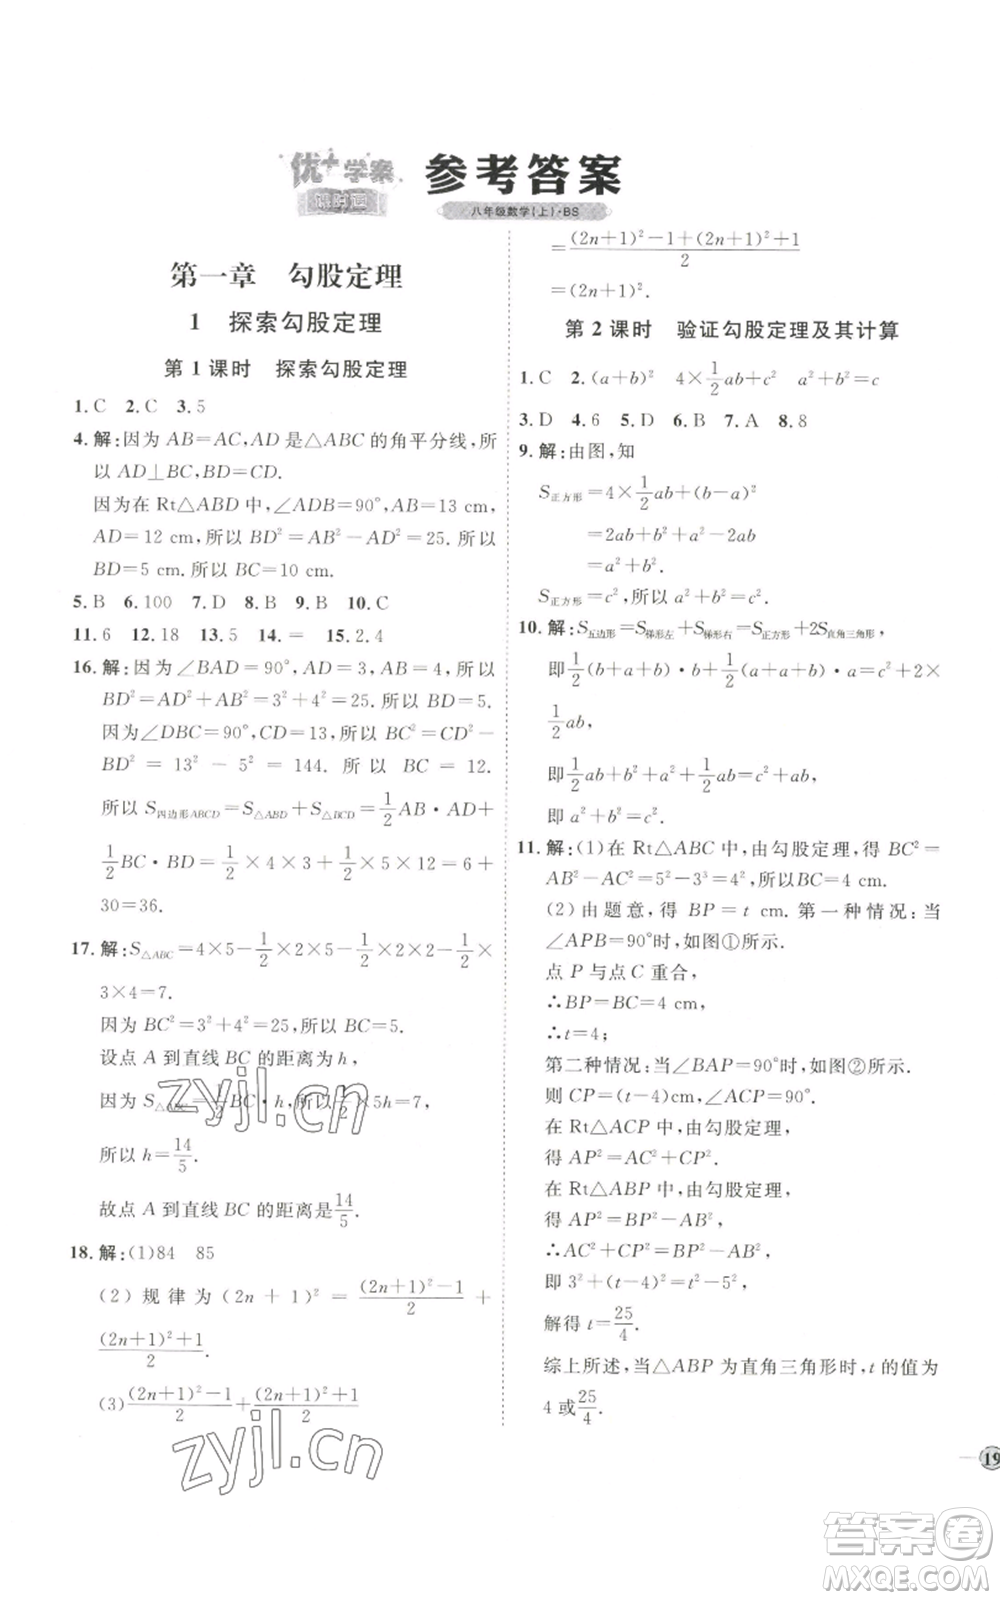 优+学案
课时通
参考答案
八年级数学(上)·BS
第一章 勾股定理
1 探索勾股定理
第1课时 探索勾股定理
1.C 2.C 3.5
4.解:因为AB=AC,AD是△ABC的角平分线,所
以AD⊥BC,BD=CD.
因为在Rt△ABD中,∠ADB=90°,AB=13 cm,
AD=12 cm,所以BD²=AB²-AD²=25.所以
BD=5 cm.所以BC=10 cm.
5.B 6.100 7.D 8.B 9.B 10.C
11.6 12.18 13.5 14.= 15.2.4
16.解:因为∠BAD=90°,AD=3,AB=4,所以
BD²=AD²+AB²=3²+4²=25.所以BD=5.
因为∠DBC=90°,CD=13,所以BC²=CD²-
BD²=13²-5²=144.所以BC=12.
所以S四边形ABCD=S△ABD+S△BCD=1/2AB·AD+
1/2BC·BD=1/2×4×3+1/2×5×12=6+
30=36.
17.解:S△ABC=4×5-1/2×2×5-1/2×2×2-1/2×
3×4=7.
因为BC²=3²+4²=25,所以BC=5.
设点A到直线BC的距离为h,
因为S△ABC=1/2BC·h=1/2×5h=7,
所以h=14/5.
故点A到直线BC的距离是14/5.
18.解:(1)84 85
(2)规律为(2n+1)²=((2n+1)²-1)/2+
((2n+1)²+1)/2.
(3)((2n+1)²-1)/2+((2n+1)²+1)/2
=((2n+1)²-1+(2n+1)²+1)/2
=(2n+1)².
第2课时 验证勾股定理及其计算
1.C 2.(a+b)² 4×1/2ab+c² a²+b²=c
3.D 4.6 5.D 6.B 7.A 8.8
9.解:由图,知
S正方形=4×1/2ab+(b-a)²
=2ab+b²-2ab
=a²+b².
S正方形=c²,所以a²+b²=c².
10.解:S五边形=S梯形左+S梯形右=S正方形+2S直角三角形,
即1/2(b+a+b)·b+1/2(a+a+b)·a=c²+2×
1/2ab,
即1/2ab+b²+a²+1/2ab=c²+ab,
即a²+b²=c².
11.解:(1)在Rt△ABC中,由勾股定理,得BC²=
AB²-AC²=5²-3³=4²,所以BC=4 cm.
(2)由题意,得BP=t cm.第一种情况:当
∠APB=90°时,如图①所示.
点P与点C重合,
∴BP=BC=4 cm,
∴t=4;
第二种情况:当∠BAP=90°时,如图②所示.
则CP=(t-4)cm,∠ACP=90°.
在Rt△ACP中,由勾股定理,
得AP²=AC²+CP².
在Rt△ABP中,由勾股定理,
得AP²=BP²-AB²,
∴AC²+CP²=BP²-AB²,
即3²+(t-4)²=t²-5²,
解得t=25/4.
综上所述,当△ABP为直角三角形时,t的值为
4或25/4.
19
zyjl.cn
zyjl.cn
答案卷
MXQE.COM